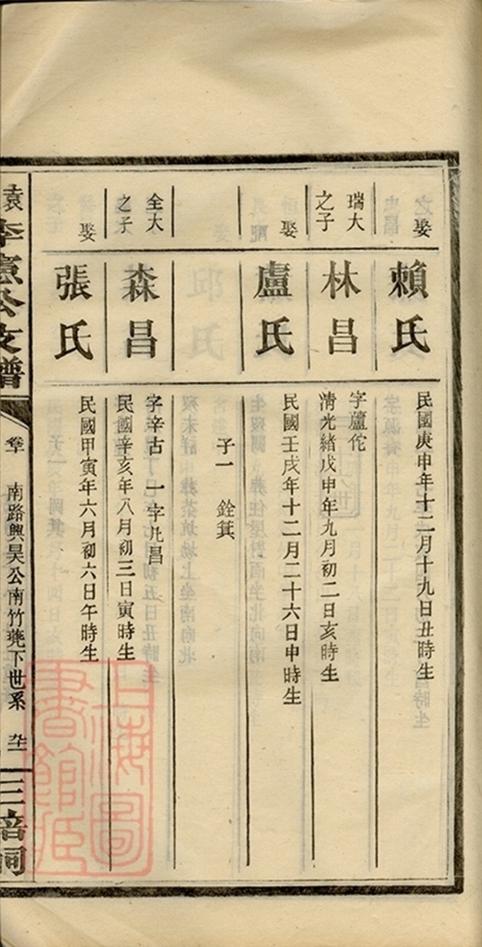 娶
賴氏
民國庚申年十二月十九日丑時生
瑞大之子
林昌
字蘆佗
清光緒戊申年九月初二日亥時生
娶
盧氏
民國壬戌年十二月二十六日申時生
子一 銓箕
全大之子
森昌
字辛古 一字尣昌
民國辛亥年八月初三日寅時生
娶
張氏
民國甲寅年六月初六日午時生
李憲公支譜
卷苄 南路興昊公南竹凳下世系
三
上海圖書館臧